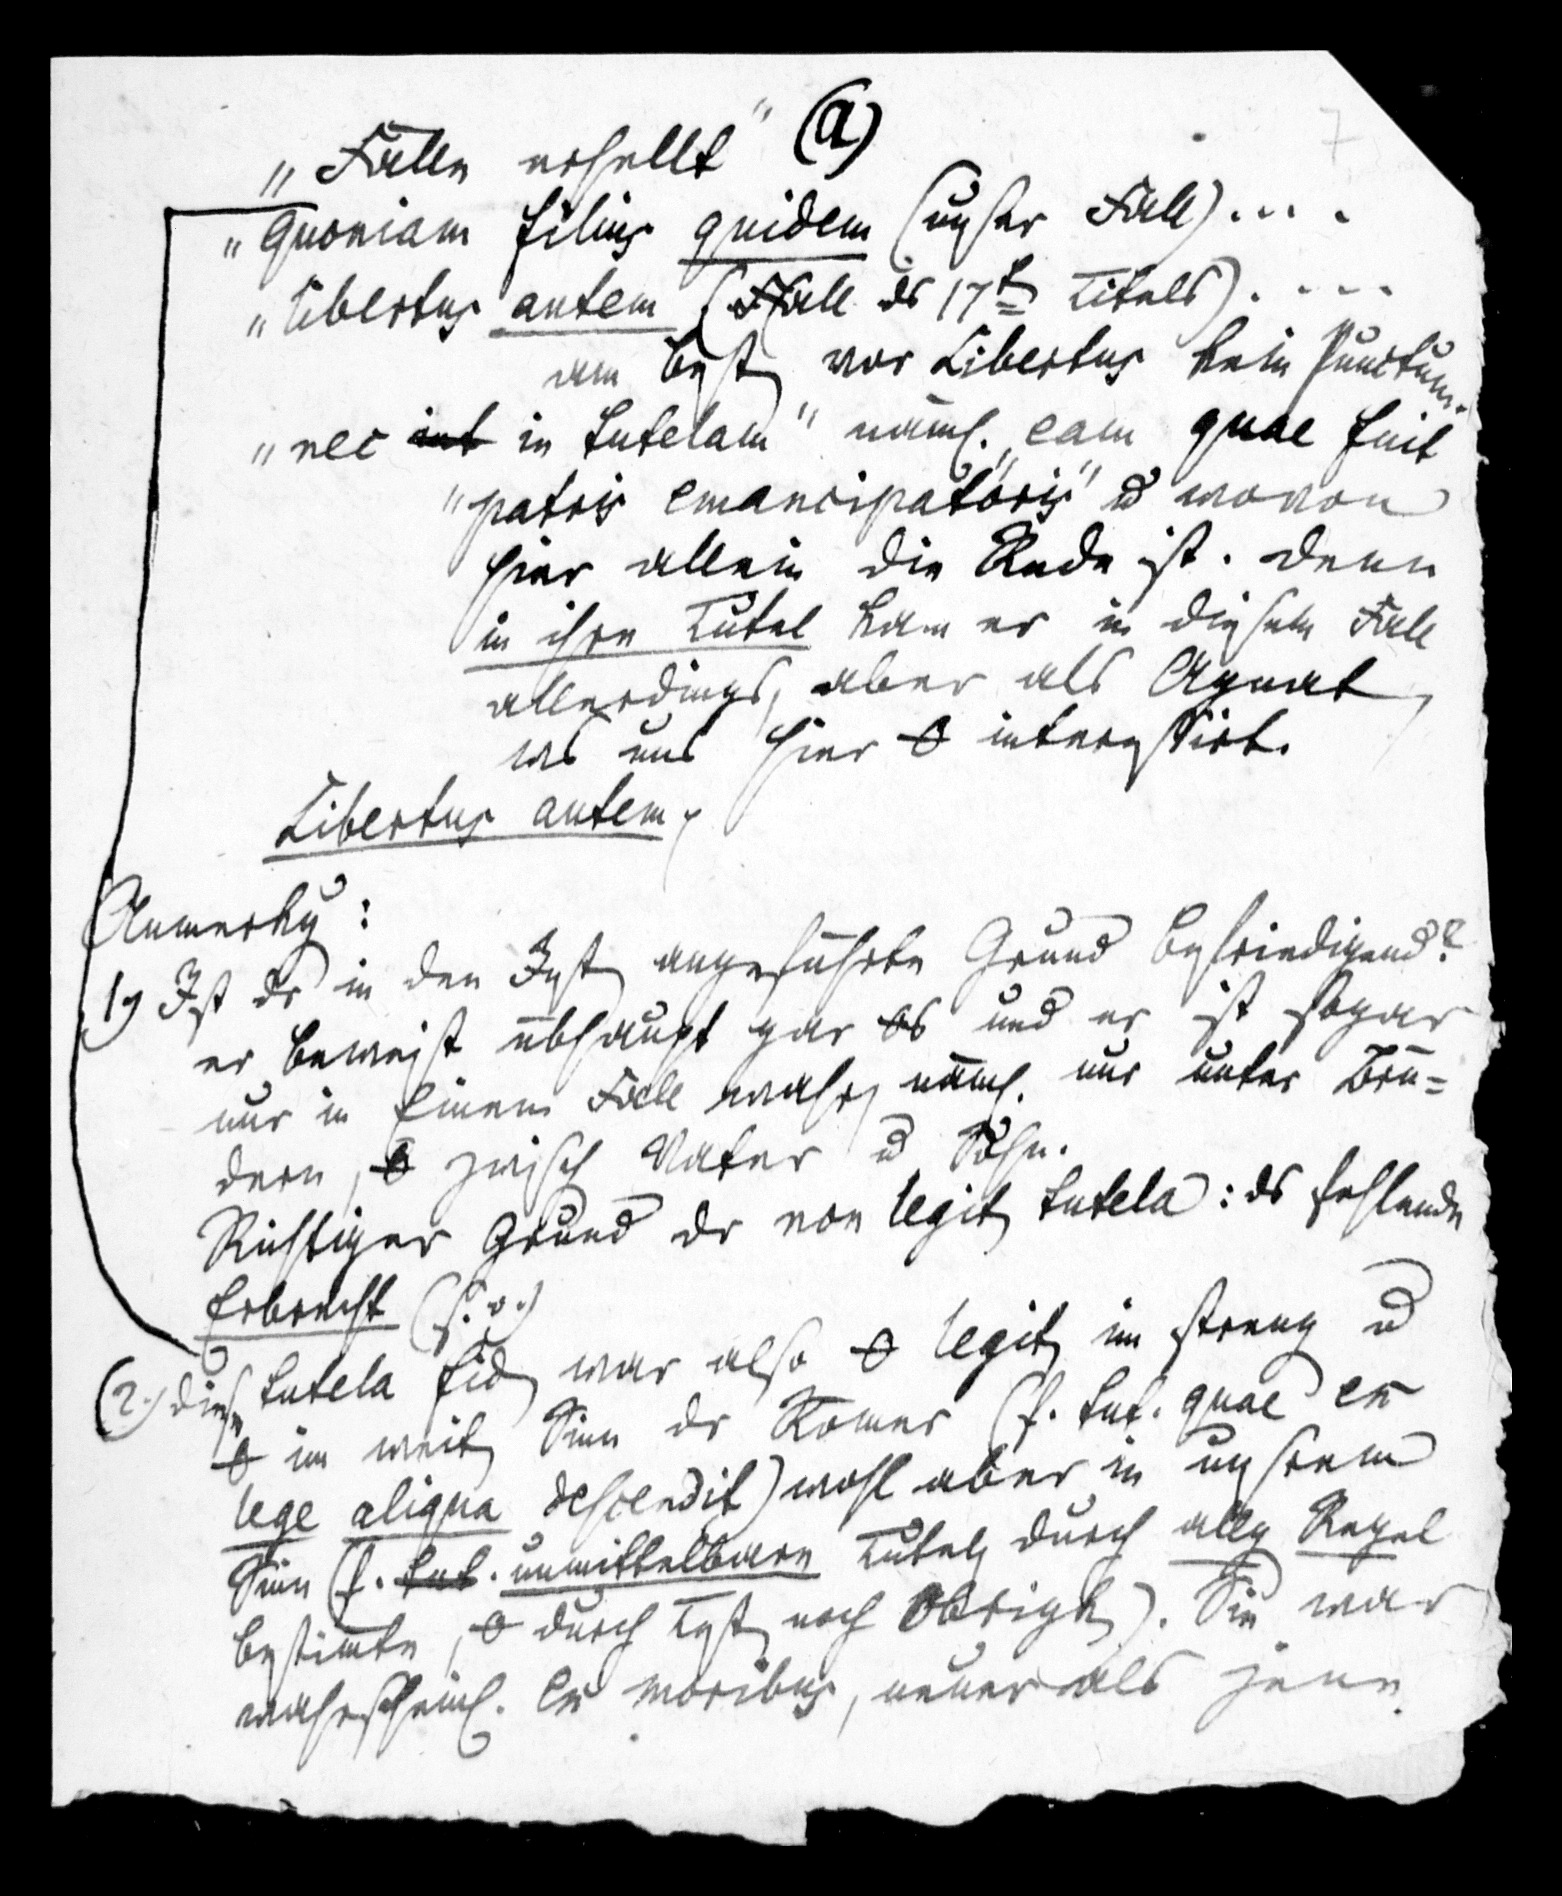 „Fälle erhellt“ (a)
„Quoniam filius quidem (unser Fall)....
„libertus autem (Fall ds 17t Titels)....
am best vor Libertus kein Punctum.
„nec in tutelam“ näml. „eam quae fuit
„patris emancipatoris“ u wovon
hier allein die Rede ist. denn
in ihre Tutel kam er in diesem Fall
allerdings, aber als Agnat,
was uns hier interessirt.
Libertus autem
Anmerkg:
1) Ist dr in den Inst angeführte Grund befriedigend?
er beweist übhaupt gar und er ist sogar
nur in Einem Fall wahr, näml. nur unter Brü-
dern, zwisch Vater u Sohn.
Richtiger Grund dr non legit tutela: ds fehlende
Erbrecht (s. o.)
(2.) diese tutela fid war also legit im streng u
im weit Sinn dr Römer (s. tut. quae ex
lege aliqua descendit) wohl aber in unsrem
Sinn (s. tut. unmittelbare Tutel durch allg Regel
bestimte, durch Test noch Obrigk). Sie war
wahrscheinl. ex moribus, neuer als jene